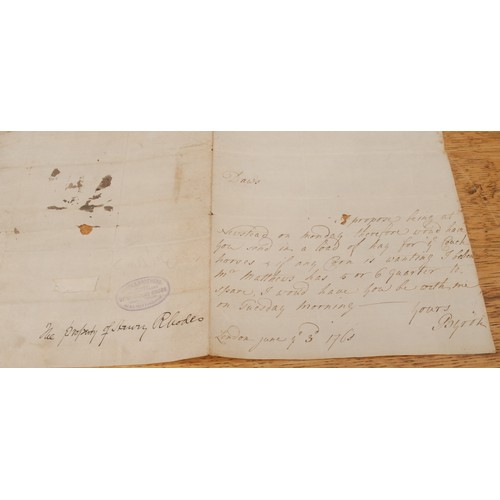 Daws
I propose being at
on monday therefore wou'd have
you send in a load of hay for yͤ Coach
horses & if any Corn is wanting I
Mͬ Matthews has 4 or 6 Quarter to
Spare, I wou'd have you be with me
on Tuesday morning
yours
London june yͤ 3ͩ 176
The property of Henry Rhodes